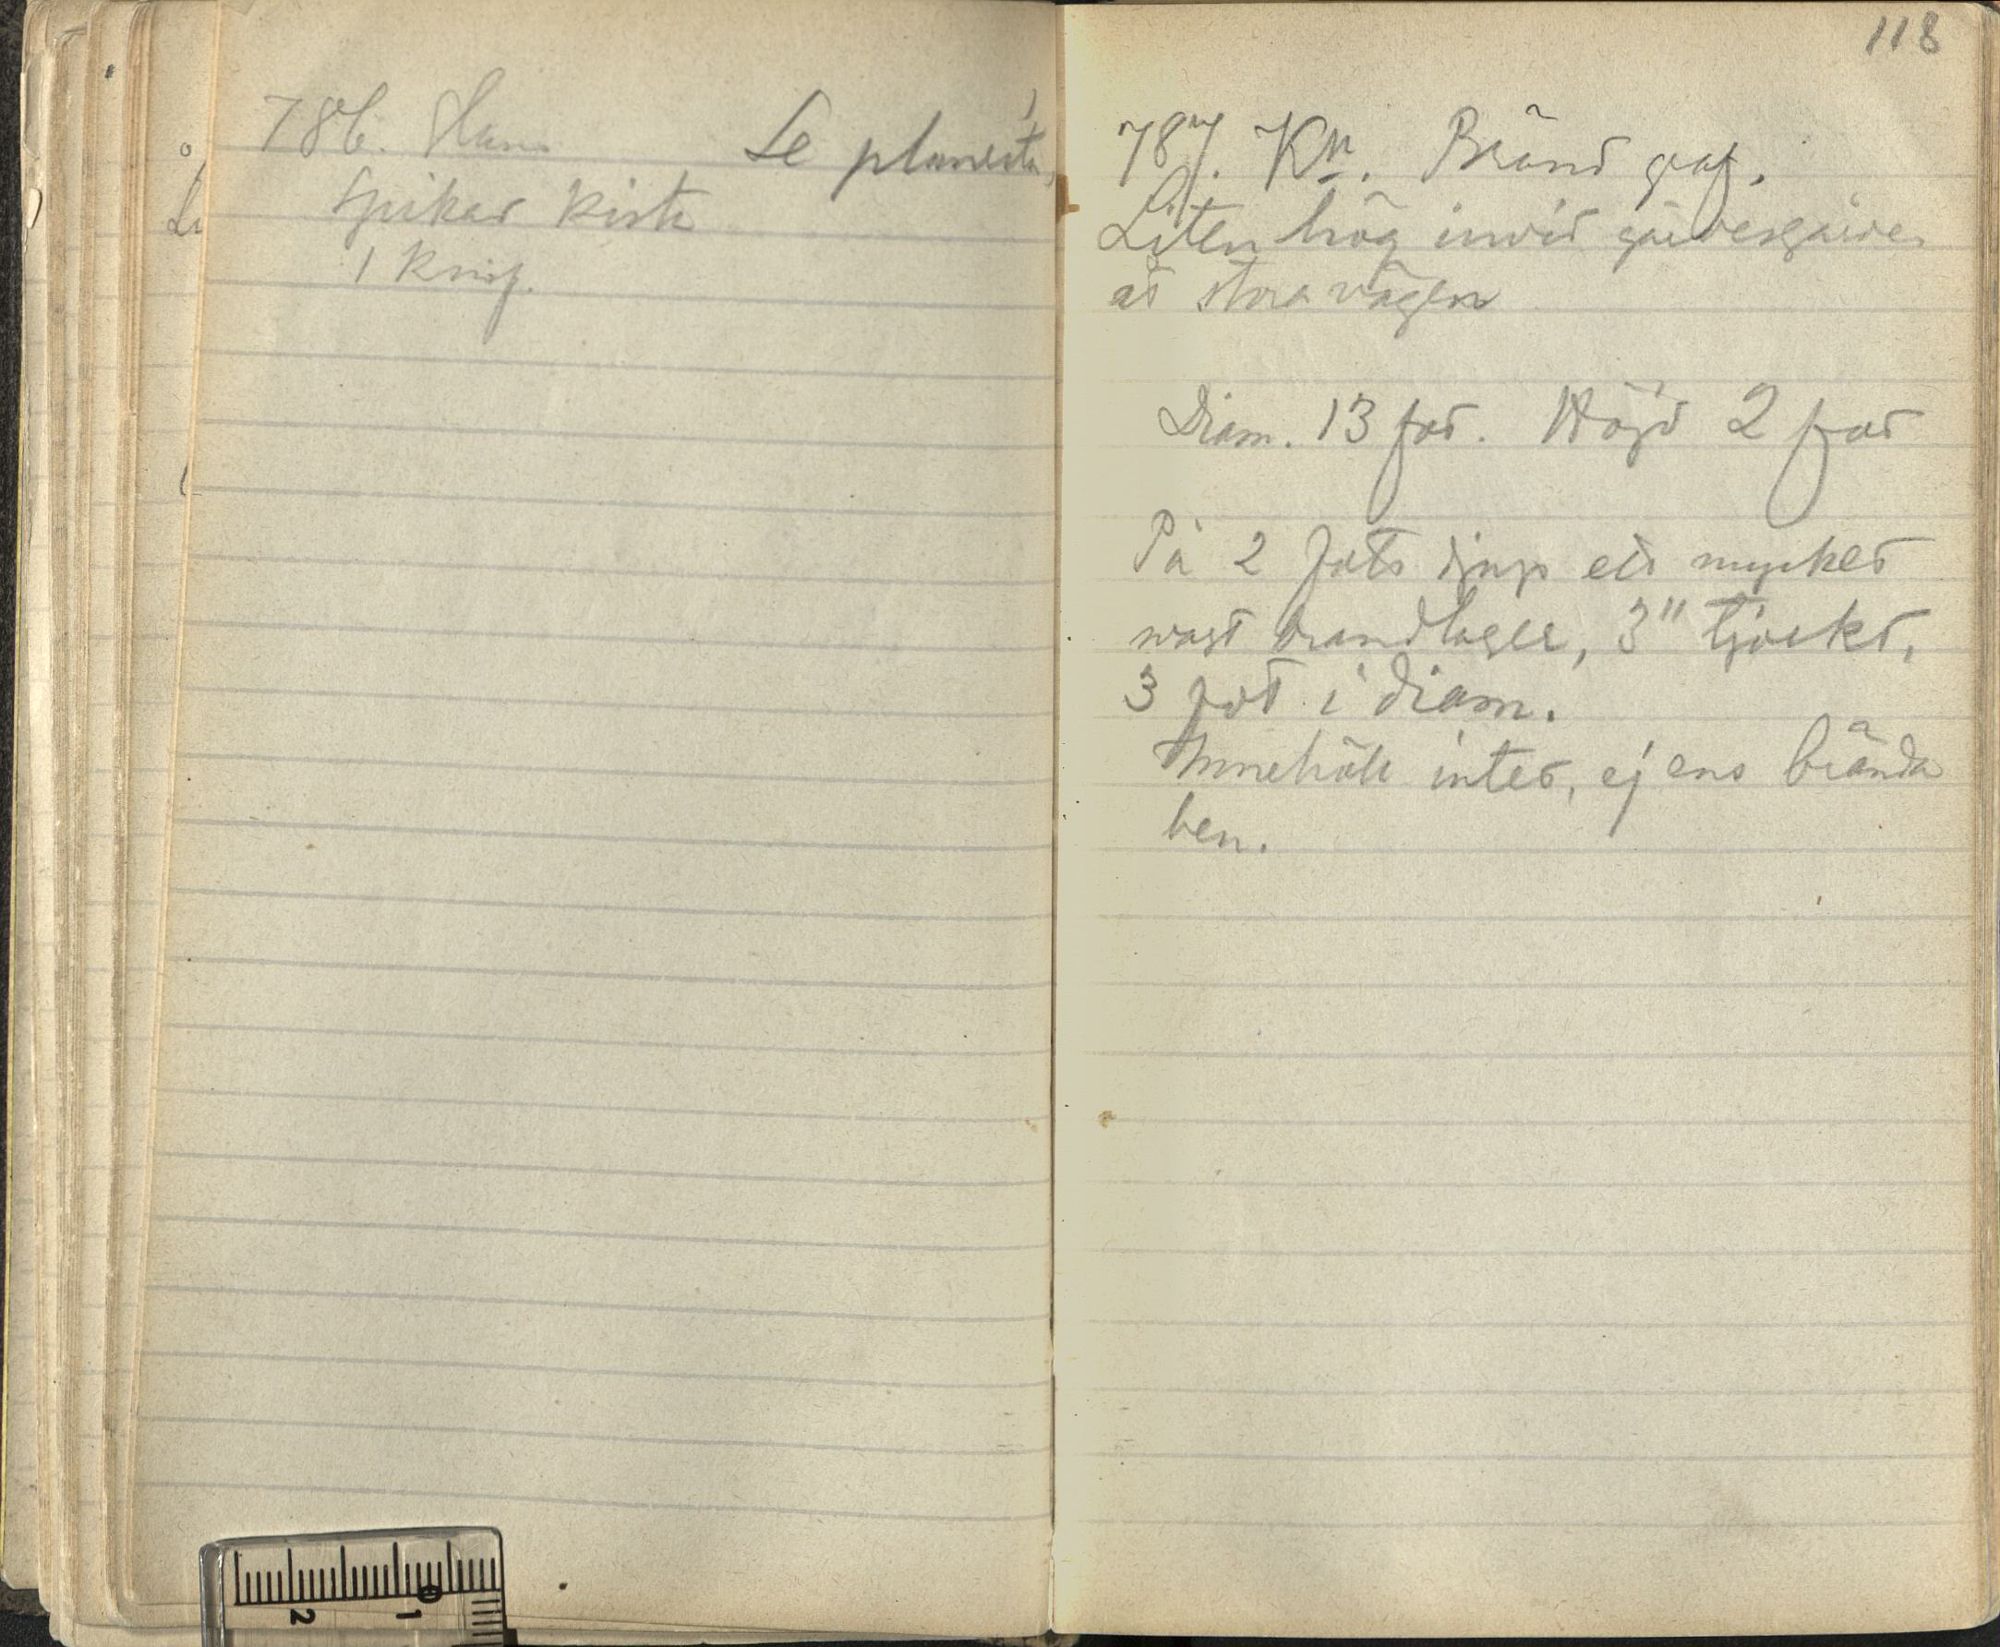 786. Hans Se planerta,
Spikar kista
1 knif.
118
787. Kn. Bränd graf.
Liten hög invid gärdesgården
åt stora vägen
Diam. 13 fot. Höjd 2 fot
På 2 fots djup ett mycket
svagt brandlager, 3" tjockt,
3 fot i diam.
Innehöll intet, ej ens brända
ben.
2 1 0